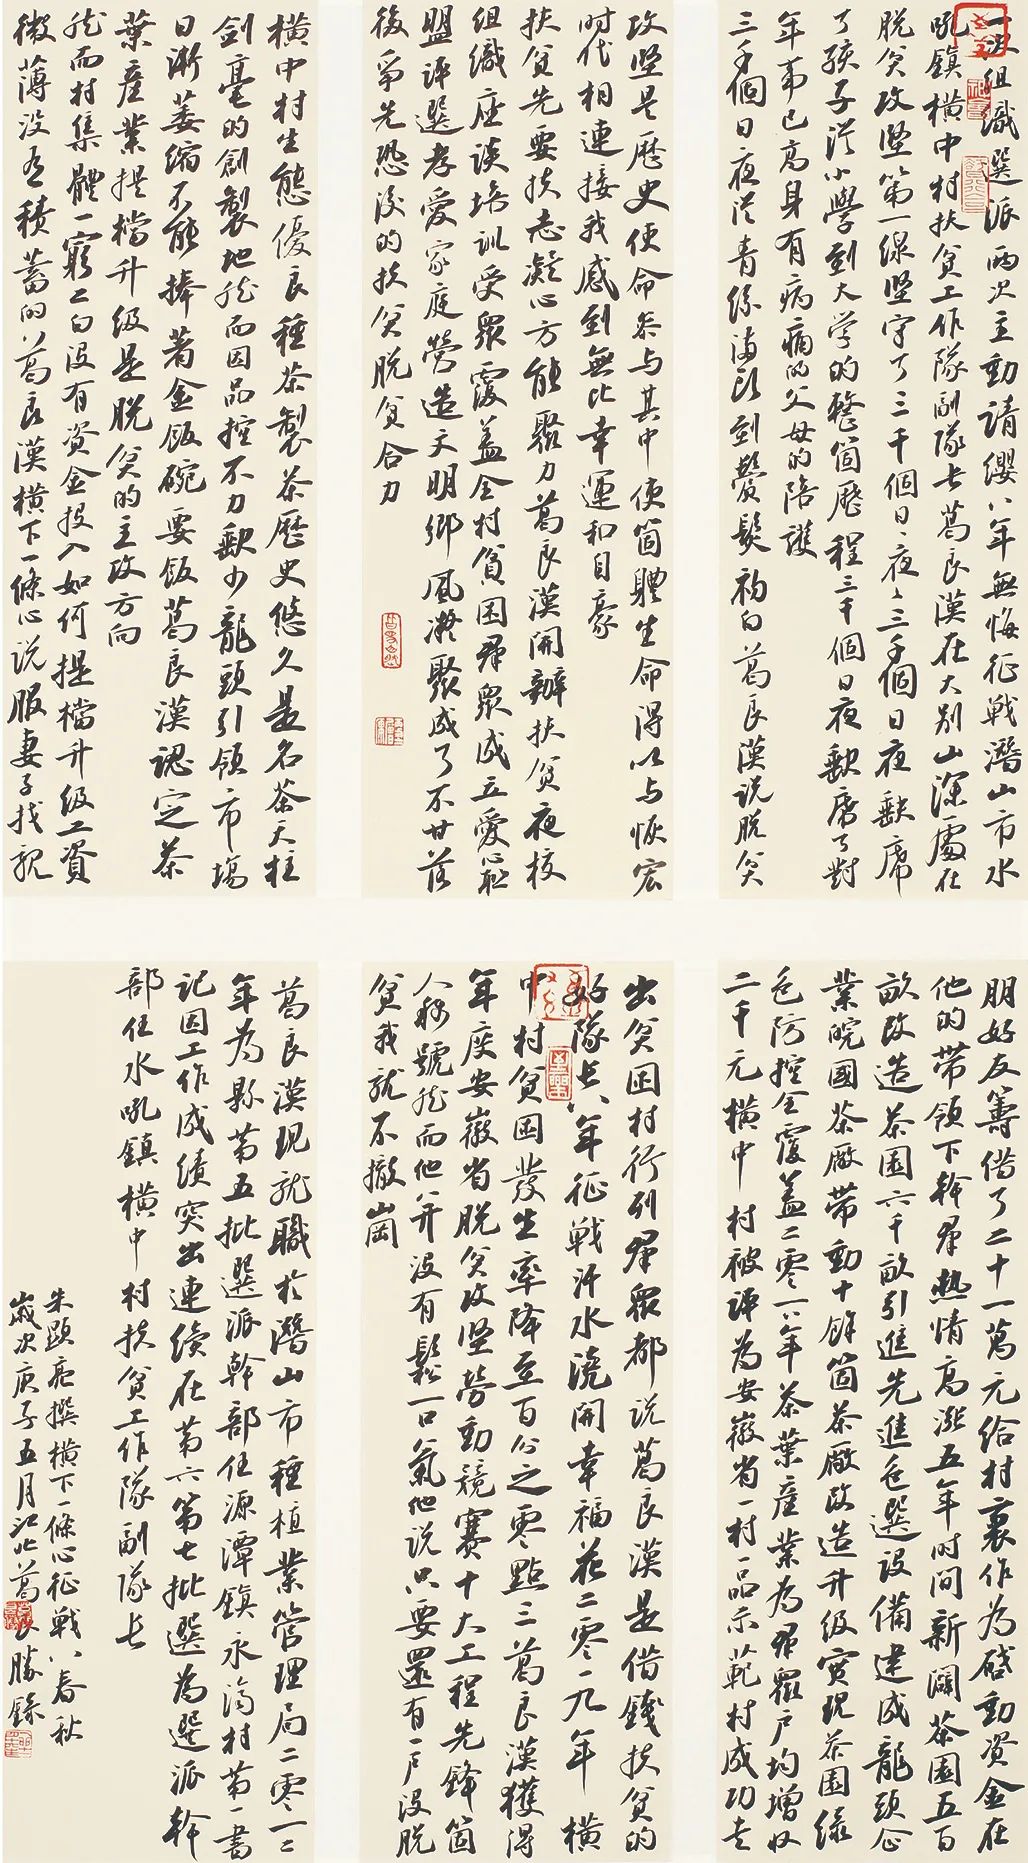 一次組織選派兩次主動請纓八年無悔征戰潛山市水
吼鎮橫中村扶貧工作隊副隊長葛良漢在大別山深處在
脫貧攻堅第一線堅守了三千個日日夜夜三千個日夜缺席
了孩子從小學到大學的整箇歷程三千個日夜缺席了對
年第已高身有病痛的父母的陪護
三千個日夜從青絲滿頭到鬢髮初白葛良漢說脫貧
攻堅是歷史使命參与其中使箇體生命得以与恢宏
时代相連接我感到無比幸運和自豪
扶貧先要扶志凝心方能聚力葛良漢開辦扶貧夜校
組織座談培訓受眾覆蓋全村貧困群眾成立愛心
盟評選孝愛家庭營造文明鄉風凝聚成了不甘落
後爭先恐後的扶貧脫貧合力
橫中村生態優良種茶製茶歷史悠久是名茶天柱
劍毫的創製地然而因品控不力缺少龍頭引領市場
日漸萎缩不能捧著金飯碗要飯葛良漢認定茶
葉產業提檔升级是脫貧的主攻方向
然而村集體一窮二白没有資金投入如何提檔升级工資
微薄没有積蓄的葛良漢橫下一條心説服妻子找親
朋好友籌借了二十一萬元给村裏作為啟動资金在
他的带领下幹群熱情高漲五年时间新闢茶園五百
畝改造茶園六千畝引進先進色選設備建成龍頭企
業皖國茶廠带動十餘箇茶廠改造升级實现茶園绿
色防控全覆蓋二零一八年茶葉產業為群眾户均增收
二千元橫中村被評為安徽省一村一品示範村成功走
出贫困村行列群眾都説葛良漢是借錢扶貧的
好隊长八年征戰汗水澆開幸福花二零一九年橫
中村貧困發生率降至百分之零點三葛良漢獲得
年度安徽省脱贫攻堅勞動競賽十大工程先鋒箇
人稱號然而他并没有鬆一口氣他説只要還有一户没脱
貧我就不撤崗
葛良漢現就職於潛山市種植業管理局二零一二
年為縣第五批選派幹部任源潭鎮永濟村第一書
記因工作成績突出連續在第六第七批選為選派幹
部任水吼鎮橫中村扶貧工作隊副隊长
朱顯亮撰橫下一條心征戰八春秋
歲次庚子五月江北葛勝録